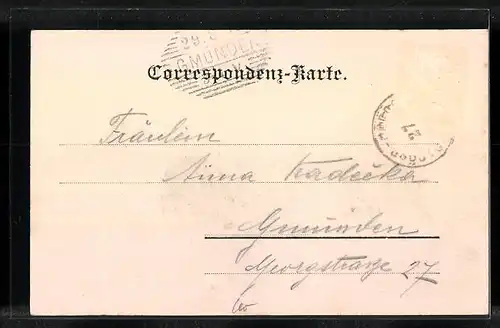 29.
GMUNDEN
Correspondenz-Karte.
Fräulein
Anna Kadečka
Gmunden
Georgstrasse 27